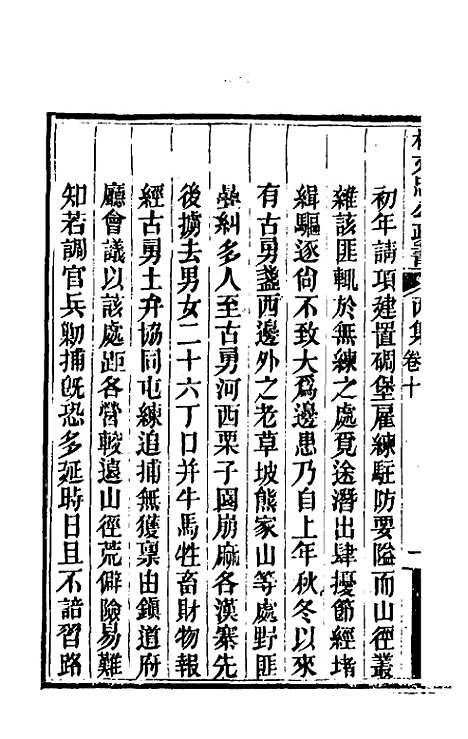 初年請項建置碉堡雇練駐防要隘而山徑叢
雜該匪輒於無練之處覓途潛出肆擾節經堵
緝驅逐尙不致大爲邊患乃自上年秋冬以來
有古勇盞西邊外之老草坡熊家山等處野匪
糾多人至古勇河西栗子園崩麻各漢寨先
後擄去男女二十六丁口并牛馬牲畜財物報
經古勇土弁協同屯練追捕無獲稟由鎭道府
廳會議以該處距各營較遠山徑荒僻險易難
知若調官兵勦捕旣恐多延時日且不諳習路
卷十
一